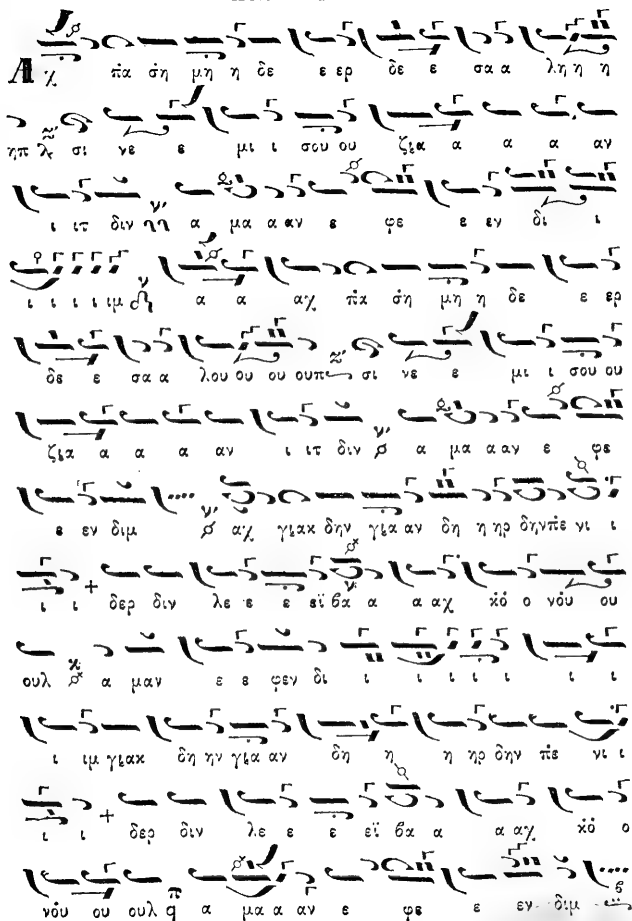 Αχ πα ση μη η δε ε ερ δε ε σα α λη η η
ηπ λ σι νε ε μι ι σου ου ζια α α α α αν
ι ιτ διν α μα α αν ε φε ε εν δι ι
ι ι ι ι ιμ α α αχ πα ση μη η δε ε ερ
δε ε σα α λου ου ου ουπ σι νε ε μι ι σου ου
ζια α α α αν ι ιτ διν α μα α αν ε φε
ε εν διμ αχ γιακ δην για αν δη η ηρ δην πε νι ι
ι ι δερ διν λε ε ε εϊ βα α α αχ κό ο νόυ ου
ουλ α μαν ε ε φεν δι ι ι ι ι ι ι ι
ι ιμ γιακ δη ην για αν δη η η ηρ δην πε νι ι
ι ι δερ διν λε ε ε εϊ βα α α αχ κό ο
νόυ ου ουλ α μα α αν ε φε ε εν διμ